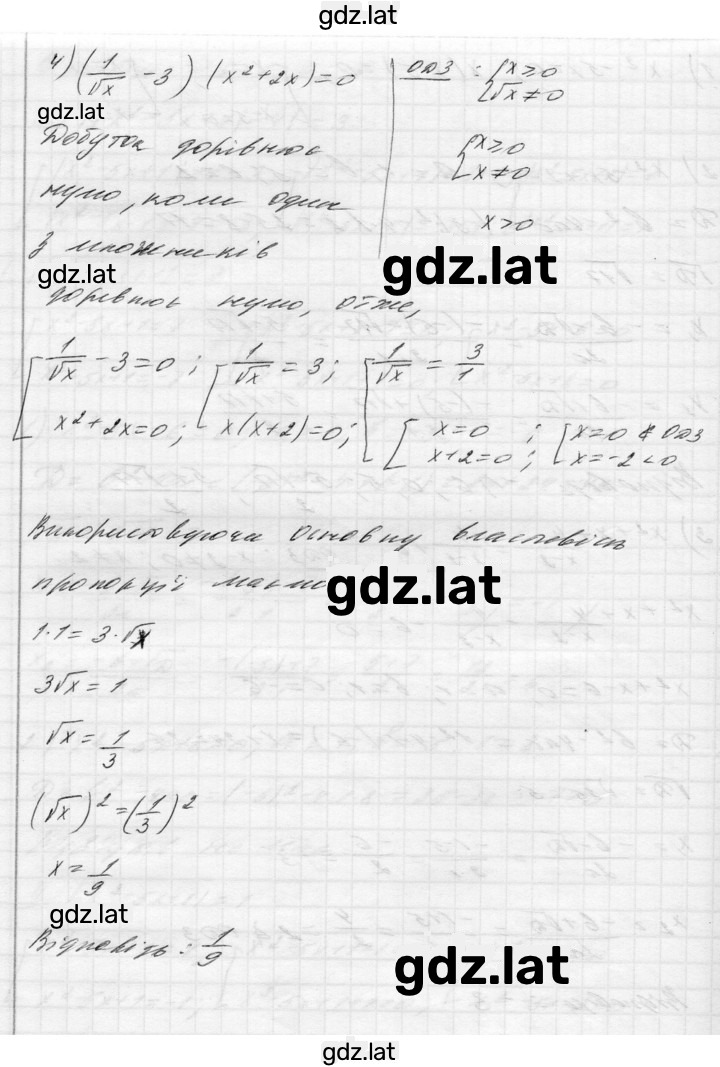 gdz.lat
4) (1/√x - 3) (x² + 2x) = 0
ОДЗ: {x ≥ 0
{√x ≠ 0
gdz.lat
{x ≥ 0
{x ≠ 0
x > 0
Добуток дорівнює
нулю, коли один
з множників
gdz.lat
gdz.lat
дорівнює нулю, отже,
[1/√x - 3 = 0; [1/√x = 3; [1/√x = 3/1
x² + 2x = 0; x(x+2) = 0; [x = 0; [x = 0 ∉ ОДЗ
x+2 = 0; x = -2 < 0
Використовуюча основну властивість
пропорції маємо
gdz.lat
1·1 = 3·√x
3√x = 1
√x = 1/3
(√x)² = (1/3)²
x = 1/9
gdz.lat
Відповідь: 1/9
gdz.lat
gdz.lat